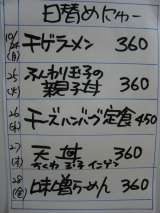 日替めにゅー
10/24(月) チゲラーメン 360
25(火) ふんわり玉子の
親子丼 360
26(水) チーズハンバーグ定食 450
27(木) 天丼 360
ちくわ 玉子 インゲン
28(金) 味噌らーめん 360